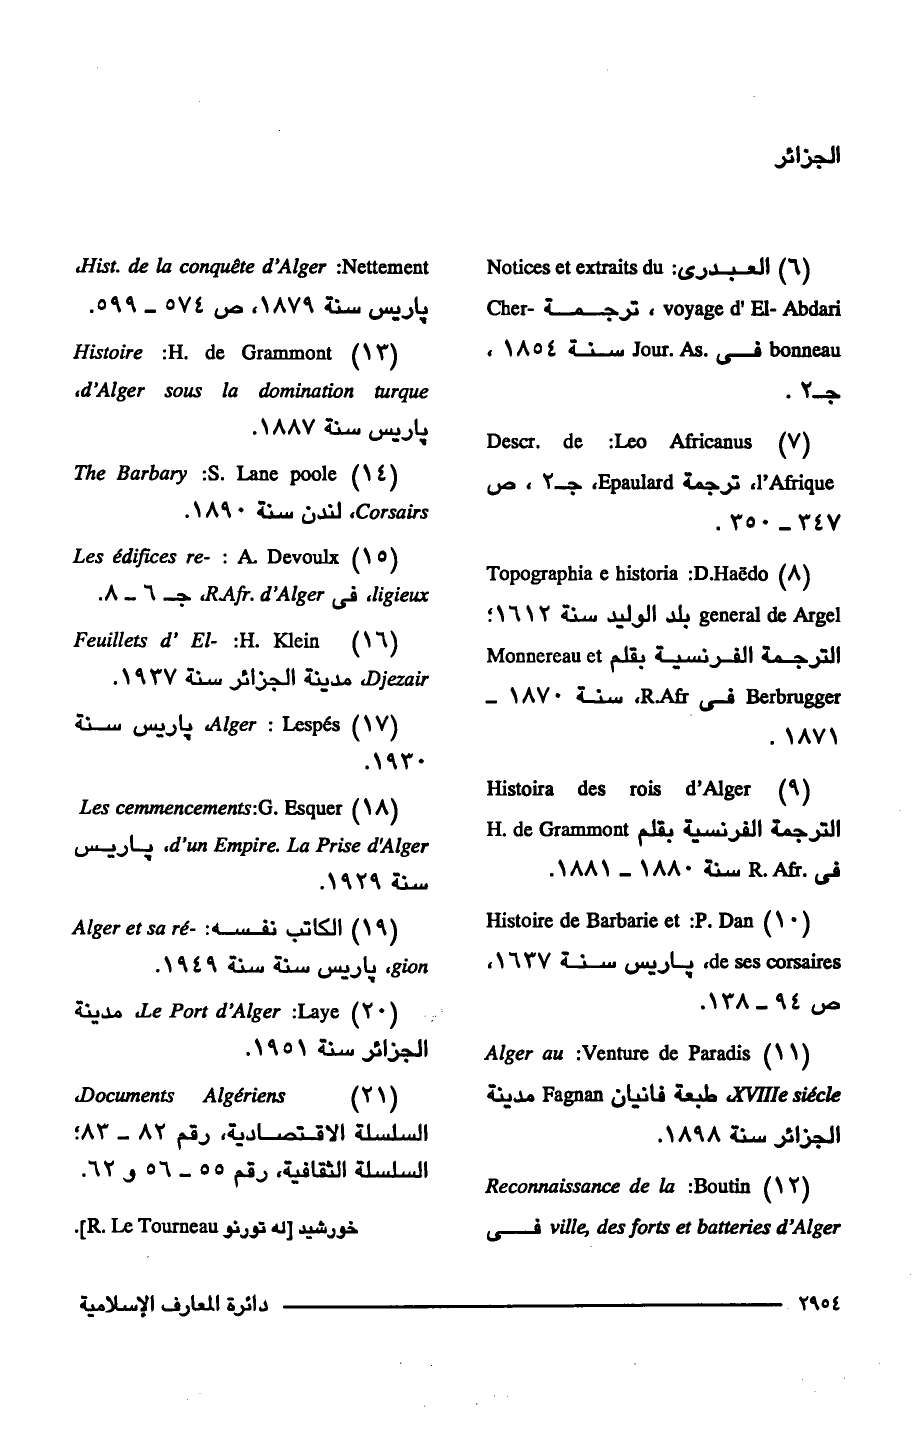 الجزائر
(٦) العبدرى: Notices et extraits du
voyage d' El- Abdari ، ترجمة Cher-
bonneau فى Jour. As. سنة ١٨٥٤ ،
جـ٢ .
(٧) Leo Africanus: Descr. de
l'Afrique، ترجمة Epaulard، جـ٢ ، ص
٣٤٧ ـ ٣٥٠ .
(٨) D.Haēdo: Topographia e historia
general de Argel بلد الوليد سنة ١٦١٢؛
الترجمة الفرنسية بقلم Monnereau et
Berbrugger فى R.Afr، سنة ١٨٧٠ ـ
١٨٧١ .
(٩) Histoira des rois d'Alger
الترجمة الفرنسية بقلم H. de Grammont
فى R. Afr. سنة ١٨٨٠ ـ ١٨٨١.
(١٠) P. Dan: Histoire de Barbarie et
de ses corsaires، پاريس سنة ١٦٣٧،
ص ٩٤ ـ ١٣٨.
(١١) Venture de Paradis: Alger au
XVIIIe siécle، طبعة فانيان Fagnan مدينة
الجزائر سنة ١٨٩٨.
(١٢) Boutin: Reconnaissance de la
ville, des forts et batteries d'Alger فى
Nettement: Hist. de la conquête d'Alger،
پاريس سنة ١٨٧٩، ص ٥٧٤ ـ ٥٩٩.
(١٣) H. de Grammont: Histoire
d'Alger sous la domination turque،
پاريس سنة ١٨٨٧.
(١٤) S. Lane poole: The Barbary
Corsairs، لندن سنة ١٨٩٠.
(١٥) A. Devoulx : Les édifices re-
ligieux، فى R.Afr. d'Alger، جـ ٦ ـ ٨.
(١٦) H. Klein: Feuillets d' El-
Djezair، مدينة الجزائر سنة ١٩٣٧.
(١٧) Lespés : Alger، پاريس سنة
١٩٣٠.
(١٨) G. Esquer:Les cemmencements
d'un Empire. La Prise d'Alger، پاريس
سنة ١٩٢٩.
(١٩) الكاتب نفسه: Alger et sa ré-
gion، پاريس سنة سنة ١٩٤٩.
(٢٠) Laye: Le Port d'Alger، مدينة
الجزائر سنة ١٩٥١.
(٢١) Documents Algériens،
السلسلة الاقتصادية، رقم ٨٢ ـ ٨٣؛
السلسلة الثقافية، رقم ٥٥ ـ ٥٦ و ٦٢.
خورشيد [له تورنو R. Le Tourneau].
٢٩٥٤ دائرة المعارف الإسلامية